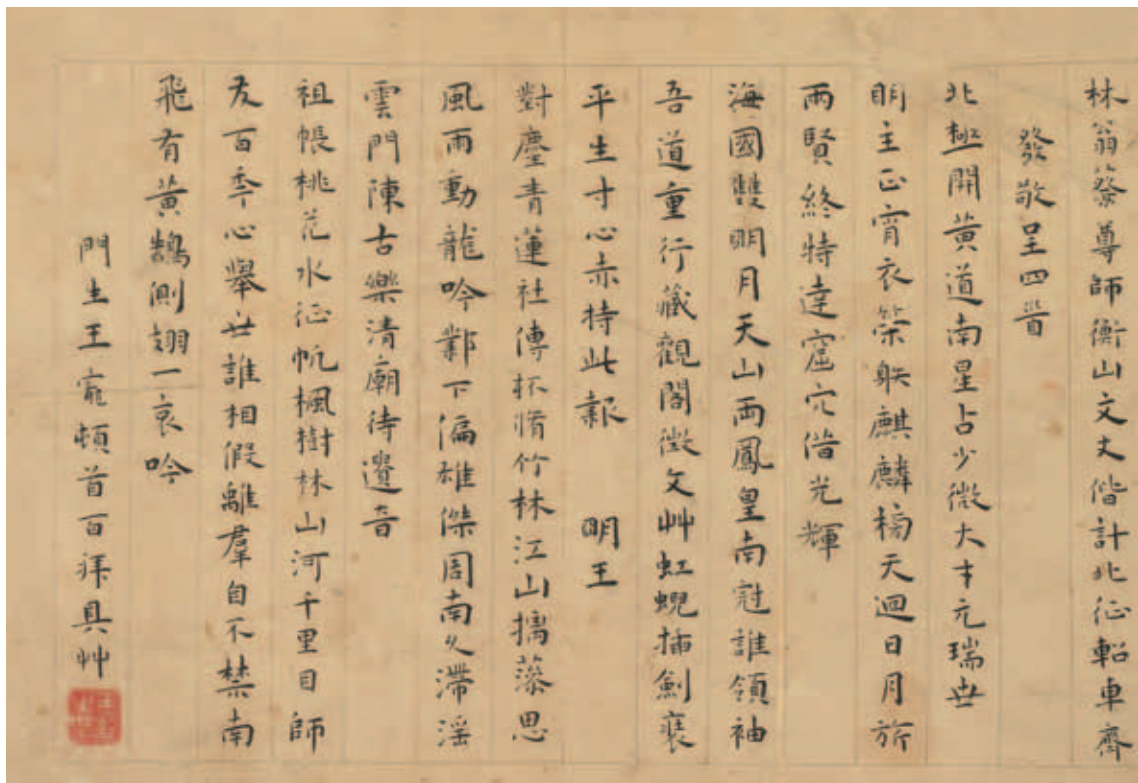 林翁蔡尊師衡山文丈偕計北征軺車齊
發敬呈四首
北極開黃道南星占少微大才元瑞世
明主正宵衣策躰麒麟榜天迴日月旂
兩賢終特達窟穴借光輝
海國雙明月天山兩鳳皇南冠誰領袖
吾道重行藏觀閣徵文艸虹蜺揷劍裝
平生寸心赤持此報 明王
對塵青蓮社傳杯脩竹林江山摛藻思
風雨動龍吟鄴下偏雄傑周南久滯淫
雲門陳古樂清廟待遺音
祖帳桃花水征帆楓樹林山河千里目師
友百年心舉世誰相假離羣自不禁南
飛有黃鵠側翅一哀吟
門生王寵頓首百拜具艸